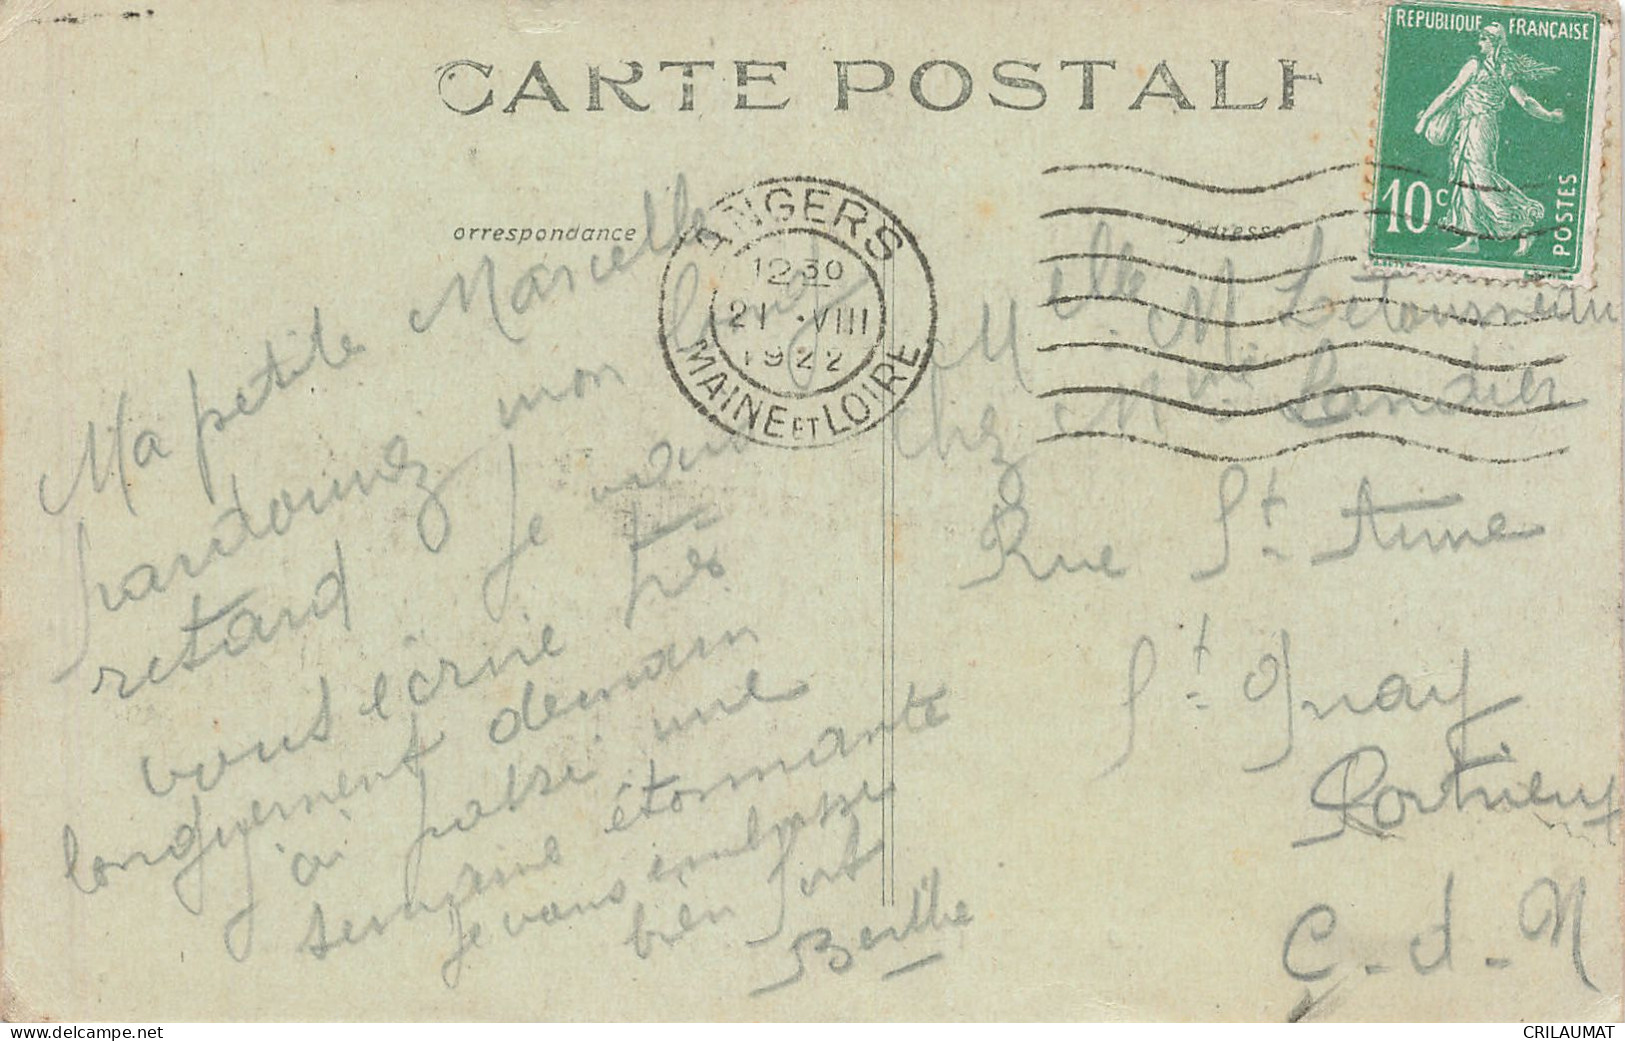 CARTE POSTALE
REPUBLIQUE FRANÇAISE
10c
POSTES
orrespondance
Adresse
ANGERS
12 30
21 .VIII
1922
MAINE ET LOIRE
Ma petite Marcelle
pardonnez mon long
retard je vous
vous écrirai très
longuement demain
ai passé une
semaine étonnante
je vous embrasse
bien fort
Berthe
Melle M Letourneau
chez Mme Landier
Rue St Anne
St Quay
Portrieux
C-d-N
CRILAUMAT